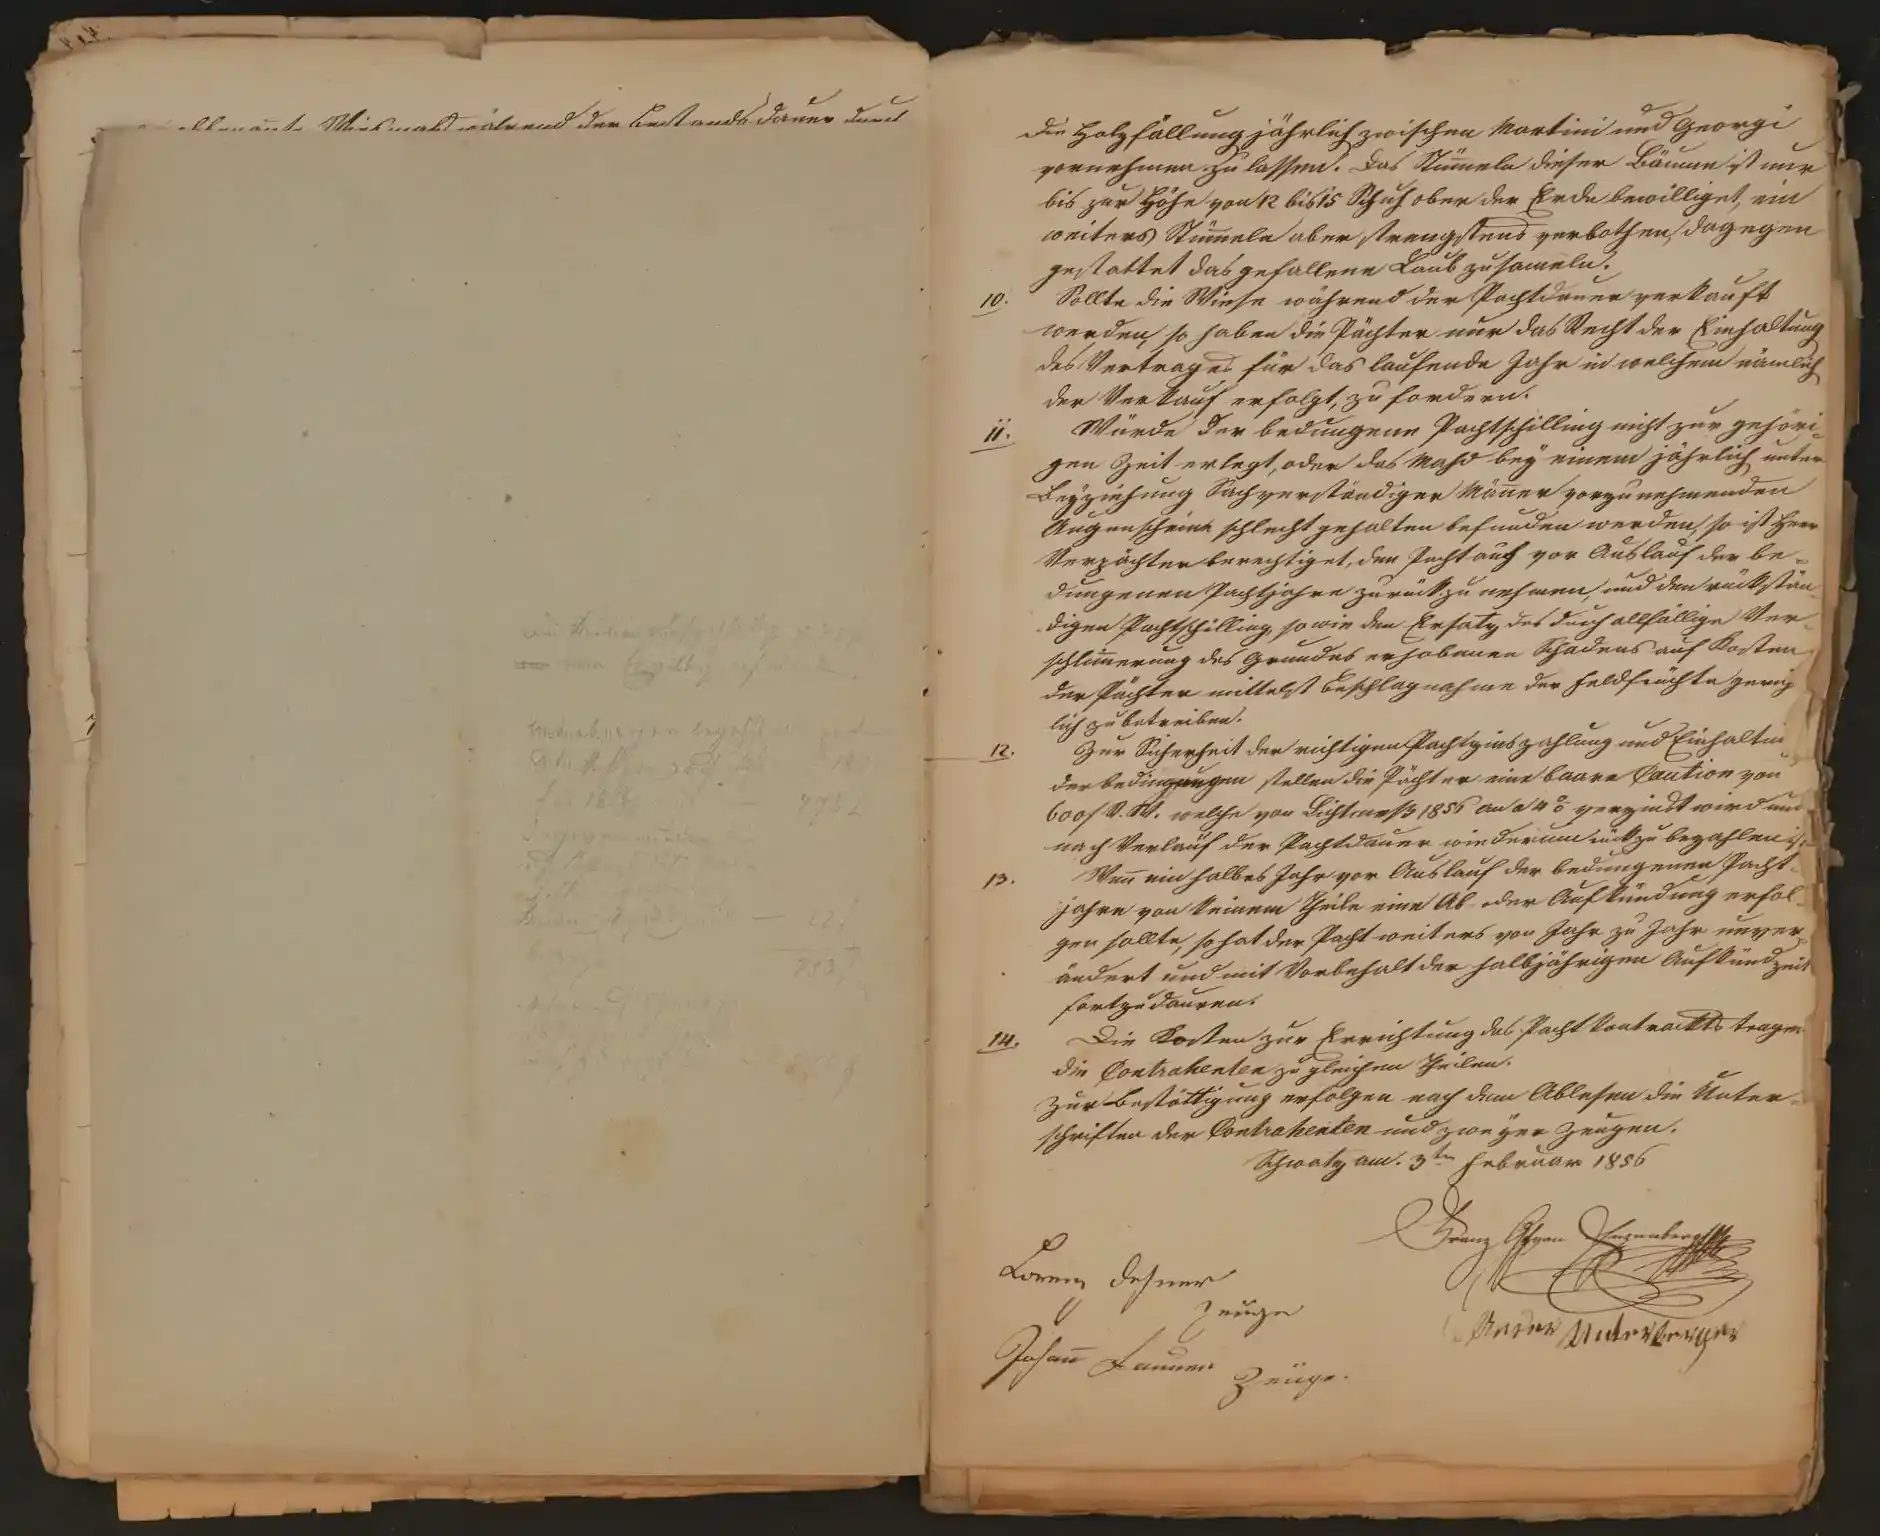 Wiesmahd während der Bestandsdauer durch
die Holzfällung jährlich zwischen Martini und Georgi
vornehmen zu lassen. Das Stümeln dieser Bäume ist nur
bis zur Höhe von 12 bis 15 Schuh ober der Erde bewilliget, ein
weiters Stümeln aber strengstens verbothen, dagegen
gestattet das gefallene Laub zu sameln.
10. Sollte die Wiese während der Pachtdauer verkauft
werden, so haben die Pächter nur das Recht der Einhaltung
des Vertrages für das laufende Jahr in welchem nämlich
der Verkauf erfolgt, zu fordern.
11. Würde der bedungene Pachtschilling nicht zur gehöri-
gen Zeit erlegt, oder das Mahd bey einem jährlich unter
Beyziehung Sachverständiger Männer vorzunehmenden
Augenscheine schlecht gehalten befunden werden, so ist Herr
Verpächter berechtiget, den Pacht auch vor Auslauf der be-
dungenen Pachtjahre zurückzunehmen, und den rückstän-
digen Pachtschilling, so wie den Ersatz des durch allfällige Ver-
schlimerung des Grundes erhobenen Schadens auf Kosten
der Pächter mittelst Beschlagnahme der Feldfrüchte gericht-
lich zu betreiben.
12. Zur Sicherheit der richtigen Pachtzinszahlung und Einhaltung
der Bedingungen stellen die Pächter eine baare Caution von
600 f R. W. welche von Lichtmeß 1856 an a 4% verzinst wird und
nach Verlauf der Pachtdauer wiederum rückzubezahlen ist.
13. Wenn ein halbes Jahr vor Auslauf der bedungenen Pacht-
jahre von keinem Theile eine Ab- oder Aufkündung erfol-
gen sollte, so hat der Pacht weiters von Jahr zu Jahr unver-
ändert und mit Vorbehalt der halbjährigen Aufkündzeit
fortzudauren.
14. Die Kosten zur Errichtung des Pachtkontrackts tragen
die Contrahenten zu gleichen Theilen.
Zur Bestättigung erfolgen nach dem Ablesen die Unter-
schriften der Contrahenten und zweyer Zeugen.
Schwatz am 3ten Februar 1856
Franz
Lorenz
Zeuge
Unterberger
Johann
Zeuge.